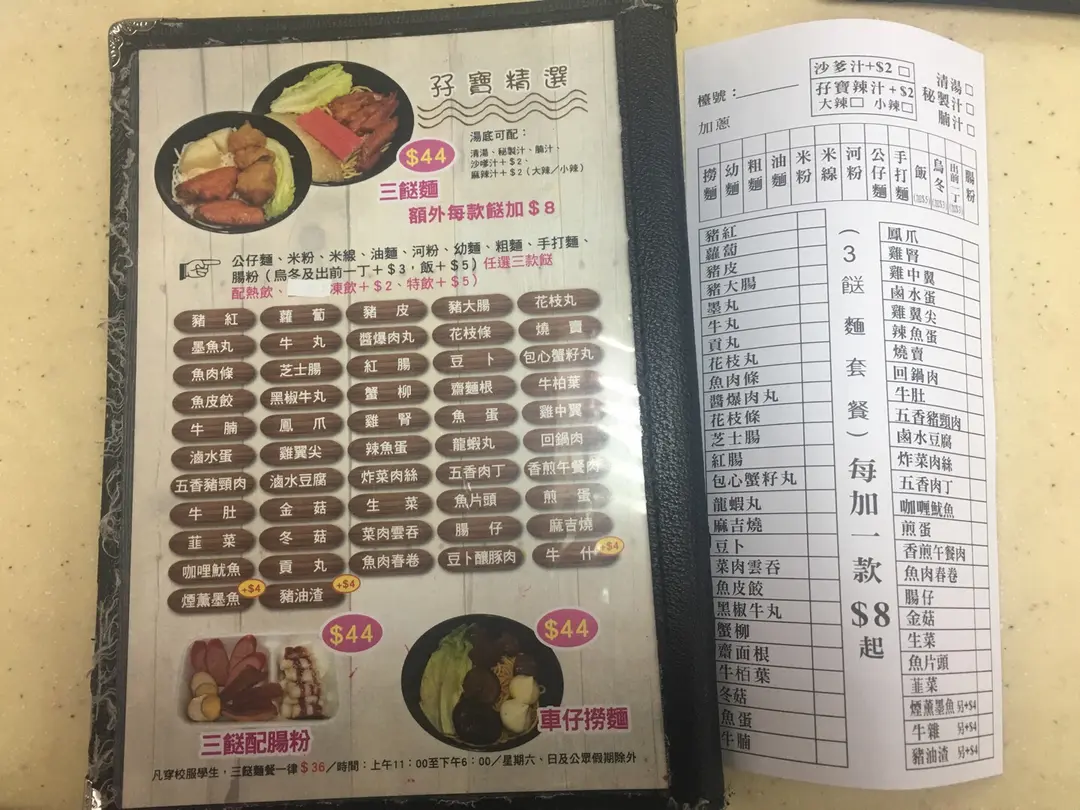 孖寶精選
$44
三餸麵
額外每款餸加$8
湯底可配：
清湯、秘製汁、腩汁、
沙嗲汁＋$2、
麻辣汁＋$2（大辣／小辣）
公仔麵、米粉、米線、油麵、河粉、幼麵、粗麵、手打麵、
腸粉（烏冬及出前一丁＋$3，飯＋$5）任選三款餸
配熱飲、凍飲＋$2、特飲＋$5）
豬紅 蘿蔔 豬皮 豬大腸 花枝丸
墨魚丸 牛丸 醬爆肉丸 花枝條 燒賣
魚肉條 芝士腸 紅腸 豆卜 包心蟹籽丸
魚皮餃 黑椒牛丸 蟹柳 齋麵根 牛柏葉
牛腩 鳳爪 雞腎 魚蛋 雞中翼
滷水蛋 雞翼尖 辣魚蛋 龍蝦丸 回鍋肉
五香豬頸肉 滷水豆腐 炸菜肉絲 五香肉丁 香煎午餐肉
牛肚 金菇 生菜 魚片頭 煎蛋
韮菜 冬菇 菜肉雲吞 腸仔 麻吉燒
咖喱魷魚 貢丸 魚肉春卷 豆卜釀豚肉 牛什 +$4
煙薰墨魚 +$4 豬油渣 +$4
$44
三餸配腸粉
$44
車仔撈麵
凡穿校服學生，三餸麵餐一律$36／時間：上午11：00至下午6：00／星期六、日及公眾假期除外
檯號：
加蔥
沙爹汁+$2
孖寶辣汁+$2
大辣 小辣
清湯
秘製汁
腩汁
撈麵
幼麵
粗麵
油麵
米粉
米線
河粉
公仔麵
手打麵
飯
烏冬
出前一丁
腸粉
豬紅
蘿蔔
豬皮
豬大腸
墨丸
牛丸
貢丸
花枝丸
魚肉條
醬爆肉丸
花枝條
芝士腸
紅腸
包心蟹籽丸
龍蝦丸
麻吉燒
豆卜
菜肉雲吞
魚皮餃
黑椒牛丸
蟹柳
齋面根
牛栢葉
冬菇
魚蛋
牛腩
（3餸麵套餐）每加一款$8起
鳳爪
雞腎
雞中翼
鹵水蛋
雞翼尖
辣魚蛋
燒賣
回鍋肉
牛肚
五香豬頸肉
鹵水豆腐
炸菜肉絲
五香肉丁
咖喱魷魚
煎蛋
香煎午餐肉
魚肉春卷
腸仔
金菇
生菜
魚片頭
韮菜
煙薰墨魚 另+$4
牛雜 另+$4
豬油渣 另+$4